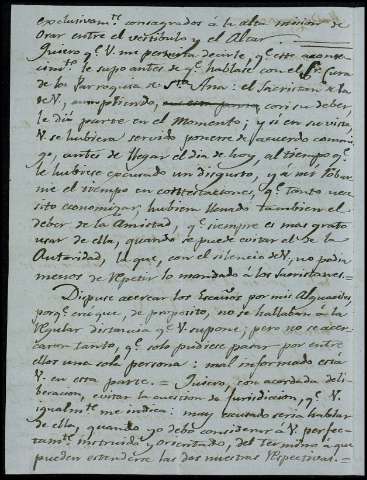 exclusivamte consagrados á la alta mision de
orar entre el vestibulo y el Altar.
Quiero qe V. me permita decirle, qe este aconte-
cimto le supo antes de qe hablase con el Sr. Cura
de la Parroquia de Sta Ana: el Sacristan de la
de V, cumpliendo, con su deber,
le dió parte en el momento; y si en su vista,
V. se hubiera servido ponerse de acuerdo conmi-
go, antes de llegar el dia de hoy, al tiempo qe
le hubiese escusado un disgusto, y á mi roba-
me el tiempo en contestaciones, qe tanto nece-
sito economizar, hubiera llenado tambien el
deber de la Amistad, qe siempre es mas grato
usar de ella, quando se puede evitar el de la
Autoridad, la que, con el silencio de V, no podia
menos de repetir lo mandado á los Sacristanes.=
Dispuse acercar los Escaños por mis Alguaciles,
porqe creí que, de propósito, no se hallaban á la
regular distancia qe V. supone; pero no se acer-
caron tanto, qe solo pudiese pasar por entre
ellos una sola persona: mal informado está
V. en esta parte.= Quiero, con acordada deli-
beracion, evitar la cuestion de Jurisdiccion, qe V.
igualmte me indica: muy escusado seria hablar
de ella, quando yo debo considerar á V. perfec-
tamte instruido y orientado, del termino á que
pueden estenderse las dos nuestras respectivas.=